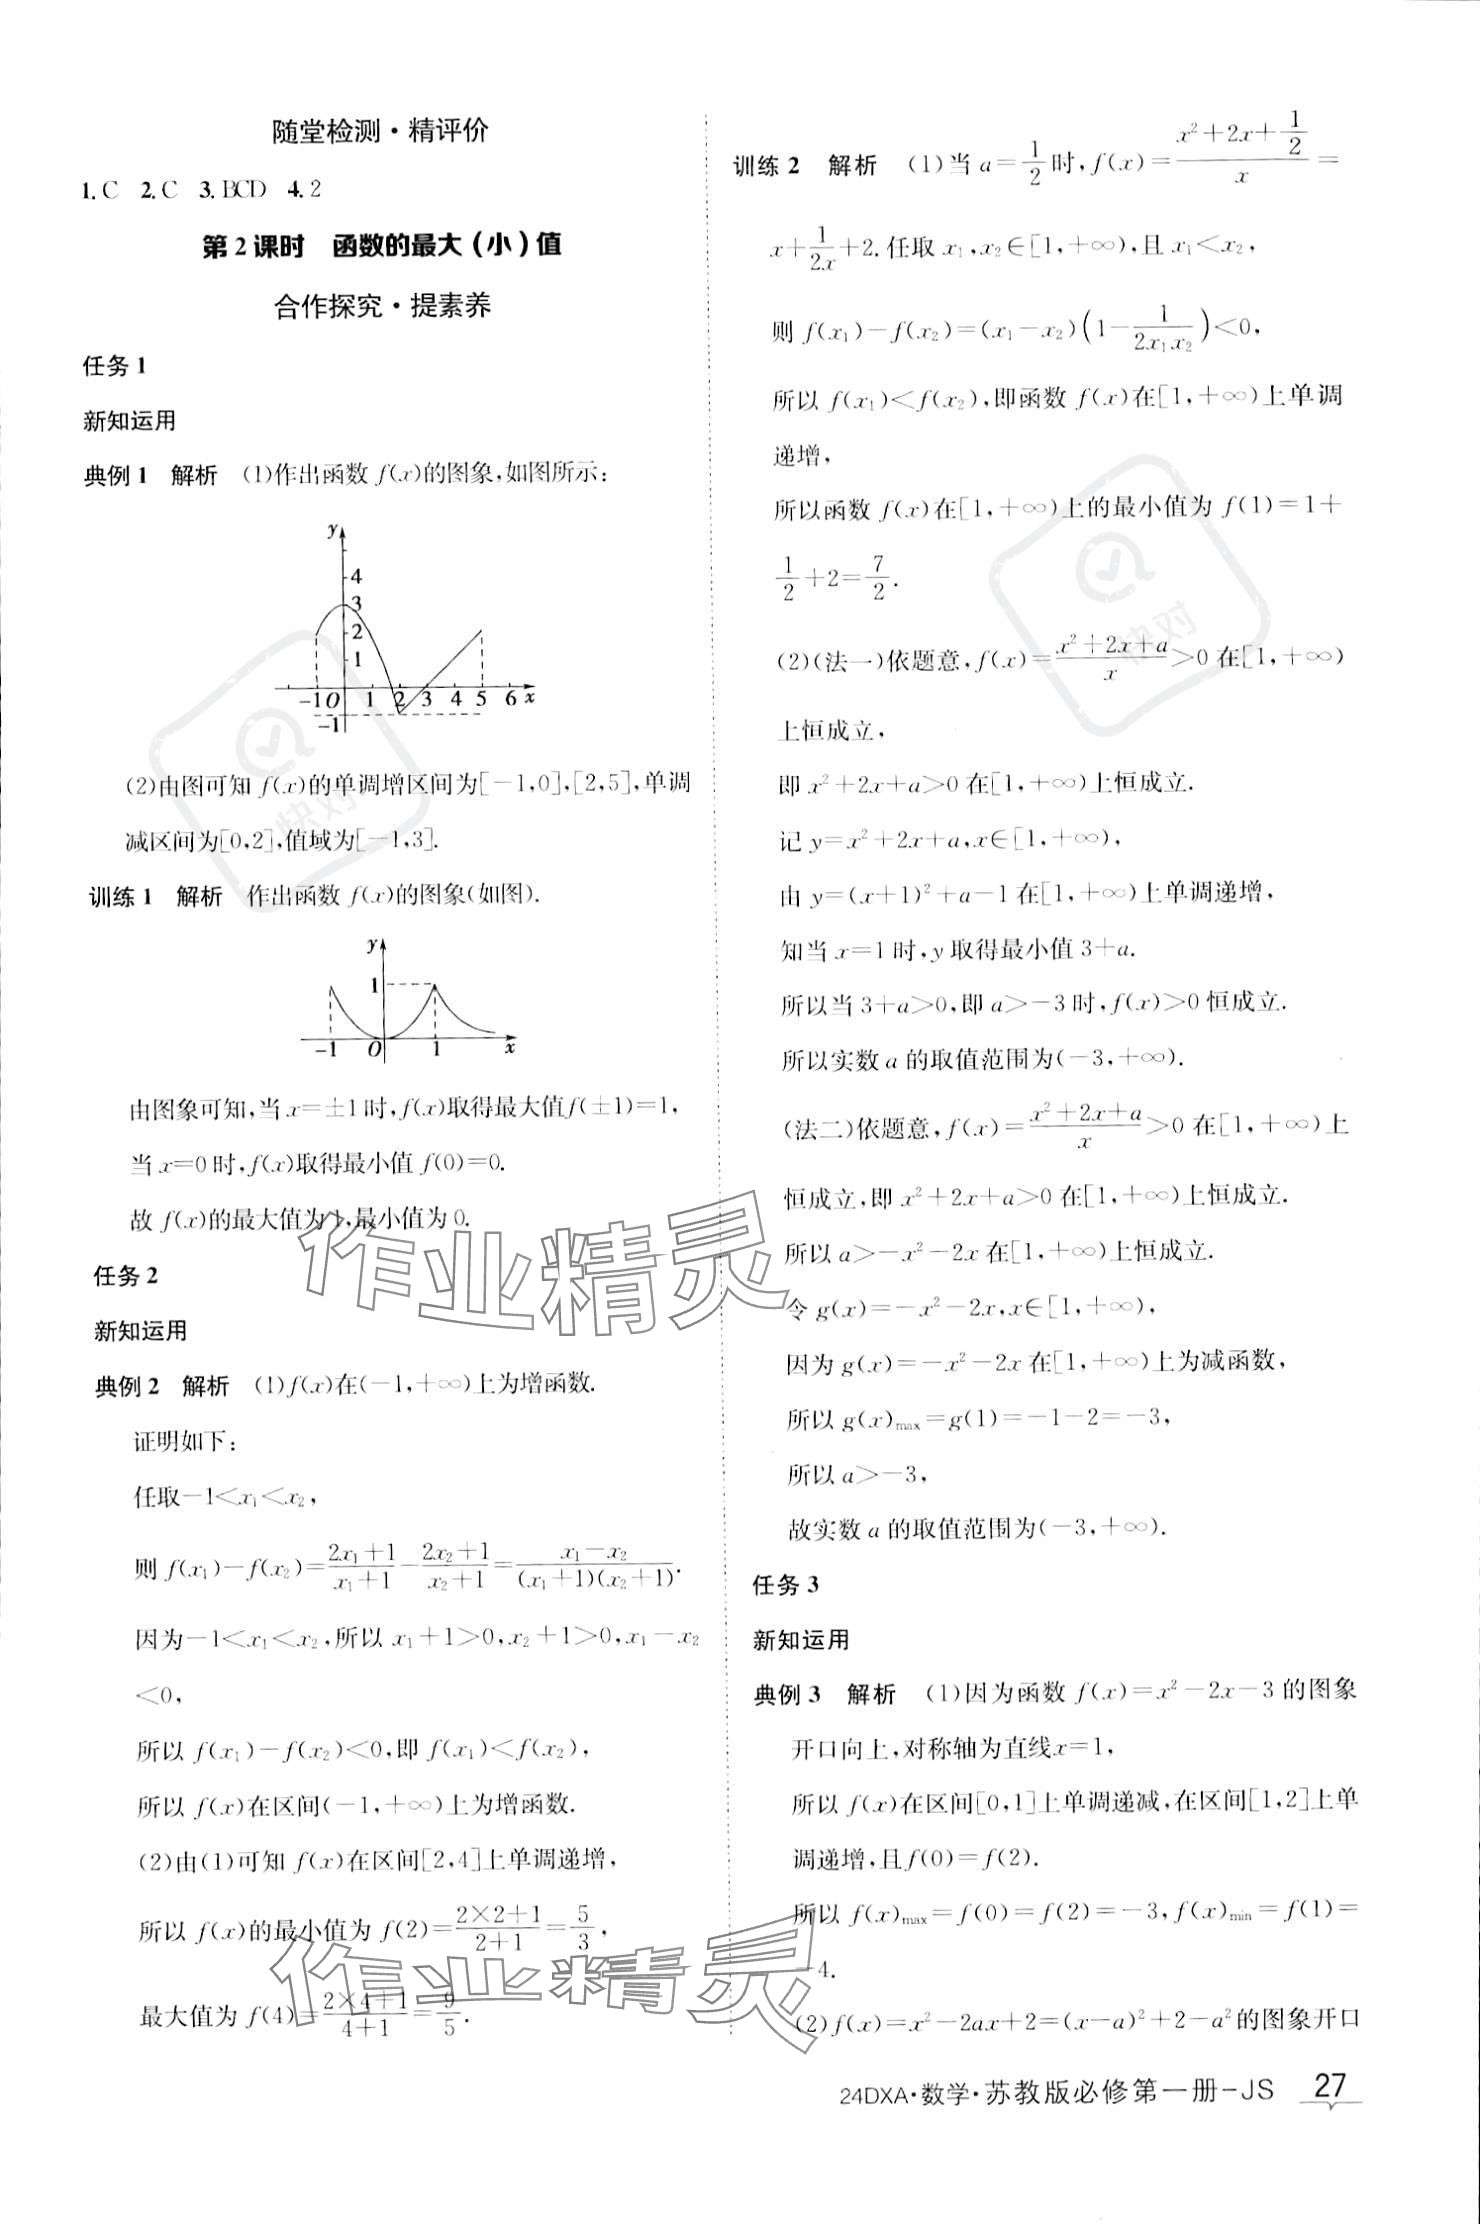 随堂检测·精评价
1.C 2.C 3.BCD 4.2
第2课时 函数的最大(小)值
合作探究·提素养
任务1
新知运用
典例1 解析 (1)作出函数 f(x)的图象,如图所示:
y
4
3
2
1
-1 O 1 2 3 4 5 6 x
-1
(2)由图可知 f(x)的单调增区间为[-1,0],[2,5],单调
减区间为[0,2],值域为[-1,3].
训练1 解析 作出函数 f(x)的图象(如图).
y
1
-1 O 1 x
由图象可知,当 x=±1时,f(x)取得最大值f(±1)=1,
当 x=0时,f(x)取得最小值 f(0)=0.
故 f(x)的最大值为1,最小值为0.
任务2
新知运用
典例2 解析 (1)f(x)在(-1,+∞)上为增函数.
证明如下:
任取-1<x₁<x₂,
则 f(x₁)-f(x₂)=\frac{2x₁+1}{x₁+1}-\frac{2x₂+1}{x₂+1}=\frac{x₁-x₂}{(x₁+1)(x₂+1)}.
因为-1<x₁<x₂,所以 x₁+1>0,x₂+1>0,x₁-x₂
<0,
所以 f(x₁)-f(x₂)<0,即 f(x₁)<f(x₂),
所以 f(x)在区间(-1,+∞)上为增函数.
(2)由(1)可知 f(x)在区间[2,4]上单调递增,
所以 f(x)的最小值为 f(2)=\frac{2×2+1}{2+1}=\frac{5}{3},
最大值为 f(4)=\frac{2×4+1}{4+1}=\frac{9}{5}.
训练2 解析 (1)当 a=\frac{1}{2}时,f(x)=\frac{x²+2x+\frac{1}{2}}{x}=
x+\frac{1}{2x}+2.任取 x₁,x₂∈[1,+∞),且 x₁<x₂,
则 f(x₁)-f(x₂)=(x₁-x₂)(1-\frac{1}{2x₁x₂})<0,
所以 f(x₁)<f(x₂),即函数 f(x)在[1,+∞)上单调
递增,
所以函数 f(x)在[1,+∞)上的最小值为 f(1)=1+
\frac{1}{2}+2=\frac{7}{2}.
(2)(法一)依题意,f(x)=\frac{x²+2x+a}{x}>0在[1,+∞)
上恒成立,
即 x²+2x+a>0在[1,+∞)上恒成立.
记 y=x²+2x+a,x∈[1,+∞),
由 y=(x+1)²+a-1在[1,+∞)上单调递增,
知当 x=1时,y取得最小值3+a.
所以当3+a>0,即 a>-3时,f(x)>0恒成立.
所以实数 a 的取值范围为(-3,+∞).
(法二)依题意,f(x)=\frac{x²+2x+a}{x}>0在[1,+∞)上
恒成立,即 x²+2x+a>0在[1,+∞)上恒成立.
所以 a>-x²-2x在[1,+∞)上恒成立.
令 g(x)=-x²-2x,x∈[1,+∞),
因为 g(x)=-x²-2x在[1,+∞)上为减函数,
所以 g(x)max=g(1)=-1-2=-3,
所以 a>-3,
故实数 a 的取值范围为(-3,+∞).
任务3
新知运用
典例3 解析 (1)因为函数 f(x)=x²-2x-3的图象
开口向上,对称轴为直线x=1,
所以 f(x)在区间[0,1]上单调递减,在区间[1,2]上单
调递增,且f(0)=f(2).
所以 f(x)max=f(0)=f(2)=-3,f(x)min=f(1)=
-4.
(2)f(x)=x²-2ax+2=(x-a)²+2-a²的图象开口
24DXA·数学·苏教版必修第一册-JS 27
快对
快对
作业精灵
作业精灵